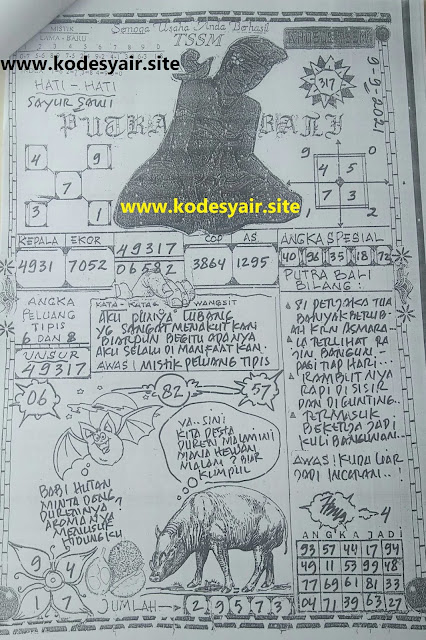 MISTIK
LAMA - BARU
Semoga Usaha Anda Berhasil
TSSM
www.kodesyair.site
HATI - HATI
SAYUR SAWI
317
9-9-2021
PUTRA BALI
4 9
7
3 1
9
4 5
7 3
0 2
www.kodesyair.site
KEPALA EKOR
4931 7052
49317
06582
COP AS
3864 1295
ANGKA SPESIAL
40 96 35 18 72
ANGKA
PELUANG
TIPIS
6 DAN 8
UNSUR
49317
KATA - KATA WANGSIT
AKU PUNYA LUBANG
YG SANGAT MENAKUTKAN
BIARPUN BEGITU ADANYA
AKU SELALU DI MANFAATKAN
AWAS! MISTIK PELUANG TIPIS
PUTRA BALI
BILANG:
SI PERJAKA TUA
BANYAK BERUB-
AH KRN ASMARA
IA TERLIHAT RA
JIN BANGUN
PAGI TIAP HARI..
RAMBUTNYA
RAPI DI SISIR
DAN DIGUNTING..
TERMASUK
BEKERJA JADI
KULI BANGUNAN...
AWAS! KUDA LIAR
JADI INCARAN..!
06
82
57
YA..SINI
KITA PESTA
DUREN MALAM INI
MANA HEWAN
MALAM?
KUMPUL
BABI HUTAN
MINTA DONG
DURENNYA
AROMANYA
MENUSUK
HIDUNGKU
9 4
1 7
JUMLAH
2 9 5 7 3
4
ANGKA JADI
93 57 44 17 94
49 11 53 99 48
77 69 61 81 33
04 71 39 63 27